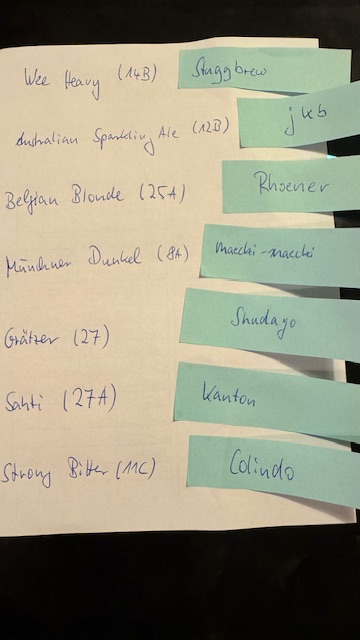 Wee Heavy (14B) Stuggbrew
Australian Sparkling Ale (12B) jkb
Belgian Blonde (25A) Rhoener
Münchner Dunkel (8A) macchi-macchi
Grätzer (27) Shudago
Sahti (27A) Kanton
Strong Bitter (11C) Colindo